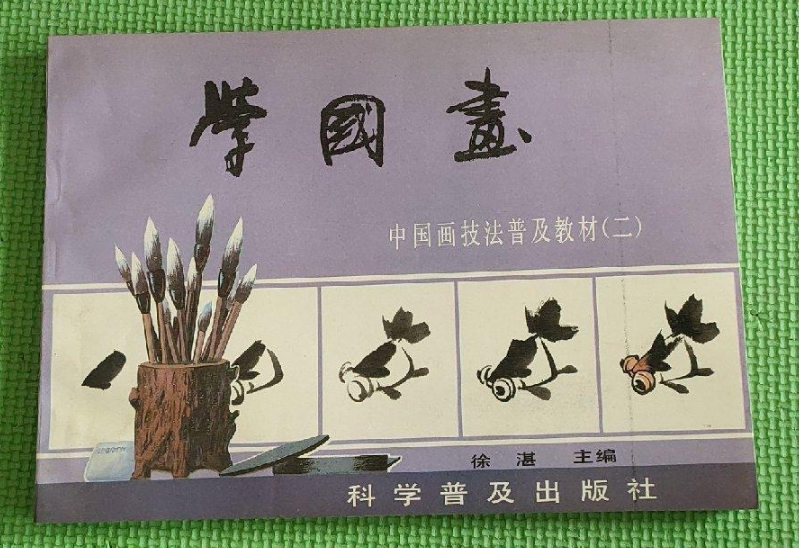 学國畫
中国画技法普及教材(二)
徐湛 主编
科学普及出版社